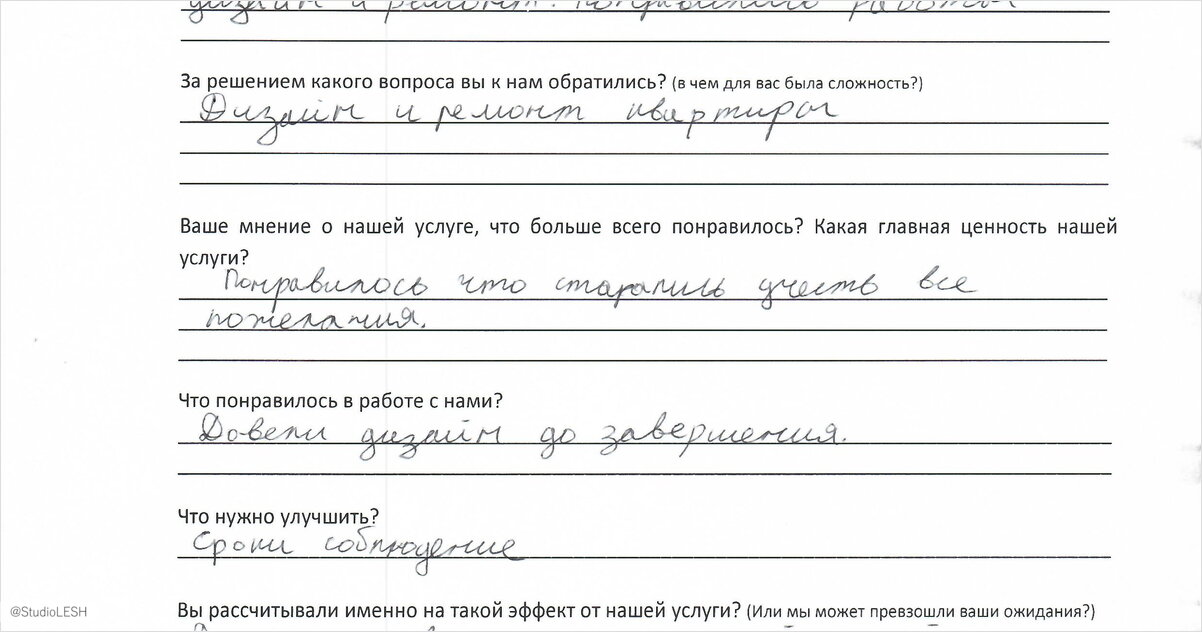 дизайн и ремонт. понравились работы
За решением какого вопроса вы к нам обратились? (в чем для вас была сложность?)
Дизайн и ремонт квартиры
Ваше мнение о нашей услуге, что больше всего понравилось? Какая главная ценность нашей
услуги?
Понравилось что старались учесть все
пожелания.
Что понравилось в работе с нами?
Довели дизайн до завершения.
Что нужно улучшить?
Сроки соблюдение
@StudioLESH
Вы рассчитывали именно на такой эффект от нашей услуги? (Или мы может превзошли ваши ожидания?)